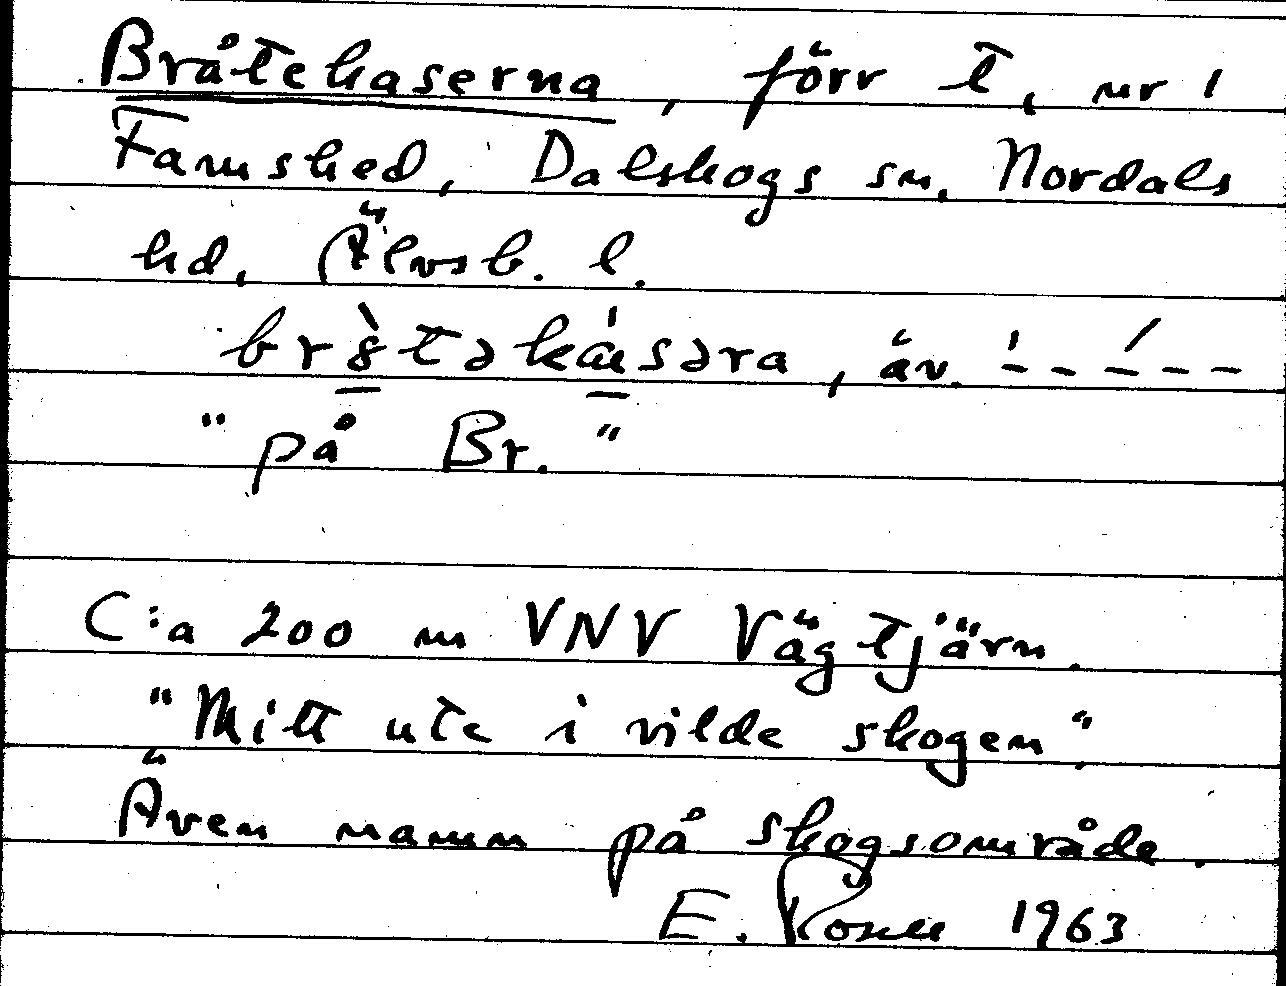 Bråtekaserna, förr t, nr 1
Famshed, Dalskogs sn, Nordals
hd, Älvsb. l.
"på Br."
C:a 200 m VNV Vägtjärn.
"Mitt ute i vilde skogen".
Även namn på skogsområde.
E. 1963